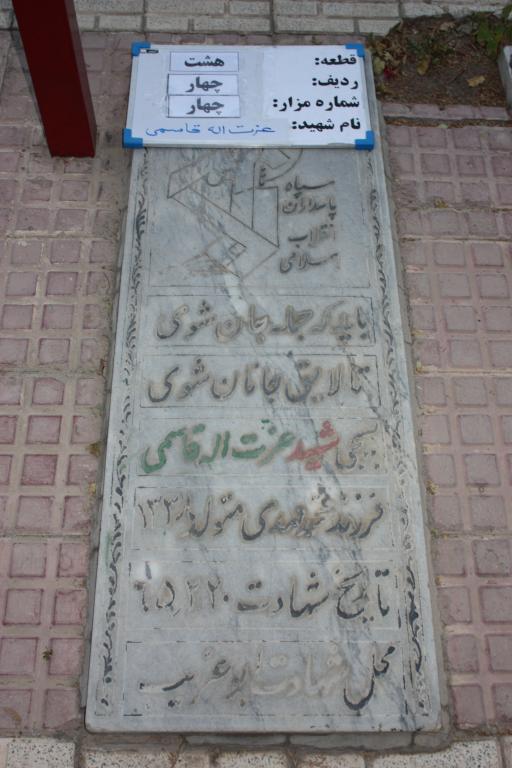 قطعه: هشت
ردیف: چهار
شماره مزار: چهار
نام شهید: عزت اله قاسمی
سپاه
پاسداران
انقلاب
اسلامی
باید که جمله جان شوی
تا لایق جانان شوی
بسیجی شهید عزت اله قاسمی
فرزند محمدمهدی متولد ۱۳۳۸
تاریخ شهادت
محل شهادت ابوغریب